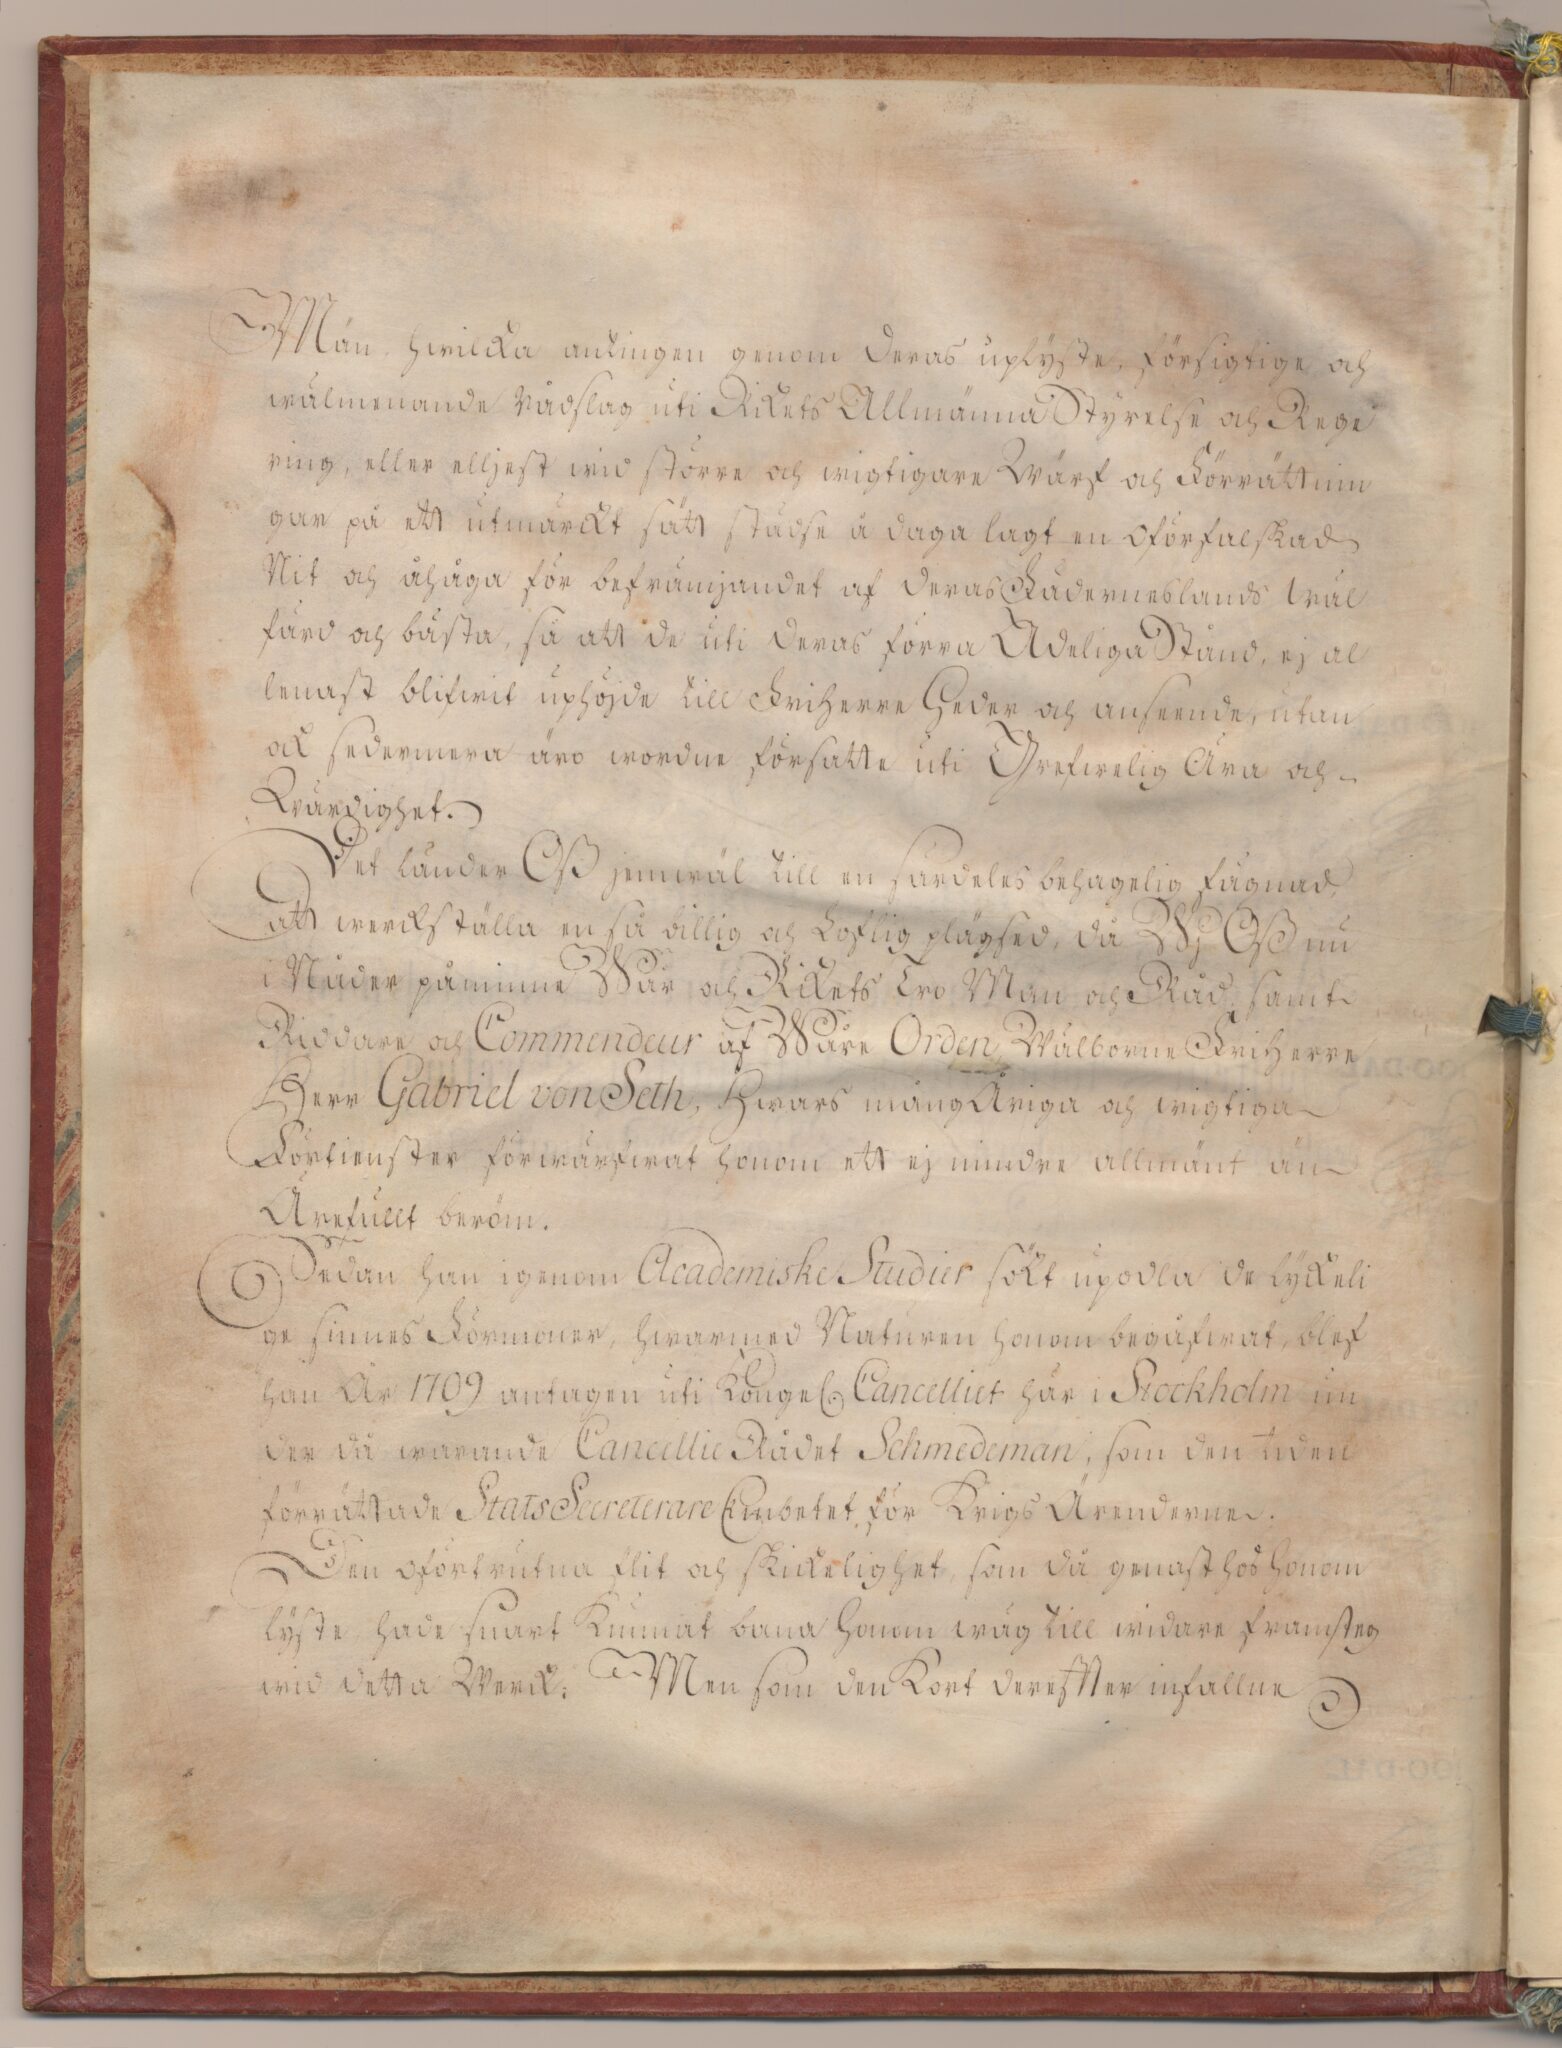 Män, hwilcka antingen genom deras uplyste, försigtige och
wälmenande rådslag uti Rikets Allmänna Styrelse och Rege
ring, eller elljest wid större och wigtigare Wärf och Förrättnin
gar på ett utmärckt sätt städse å daga lagt en oförfalskad
Nit och åhåga för befrämjandet af deras Fäderneslands wäl
färd och bästa, så att de uti deras förra Adeliga Stånd, ej al
lenast blifwit uphöjde till Friherre Heder och anseende, utan
ok sedermera äro wordne försatte uti Grefwelig Ära och
Wärdighet.
Det länder Oss jemwäl till en särdeles behagelig fägnad,
att werckställa en så billig och Loflig plägsed, då Wj Oss nu
i Nåder påminne Wår och Rikets Tro Man och Råd, samt
Riddare och Commendeur af Wåre Orden, Wälborne Friherre
Herr Gabriel von Seth, Hwars mång Åriga och wigtiga
Förtienster förwärfwat honom ett ej mindre allmänt än
Ärefullt beröm.
Sedan han igenom Academiske Studier sökt upodla de lyckeli
ge sinnes Förmoner, hwarmed Naturen honom begåfwat, blef
han År 1709 antagen uti Konge: Cancelliet här i Stockholm un
der då warande Cancellie Rådet Schmedeman, som den tiden
förrättade Stats Secreterare Embetet för Krigs Ärenderne.
Den oförtrutna flit och skickelighet, som då genast hos honom
lyste, hade snart kunnat bana honom wäg till widare framsteg
wid detta Werck; Men som den Kort derefter infallne
100 DAL
100 DAL